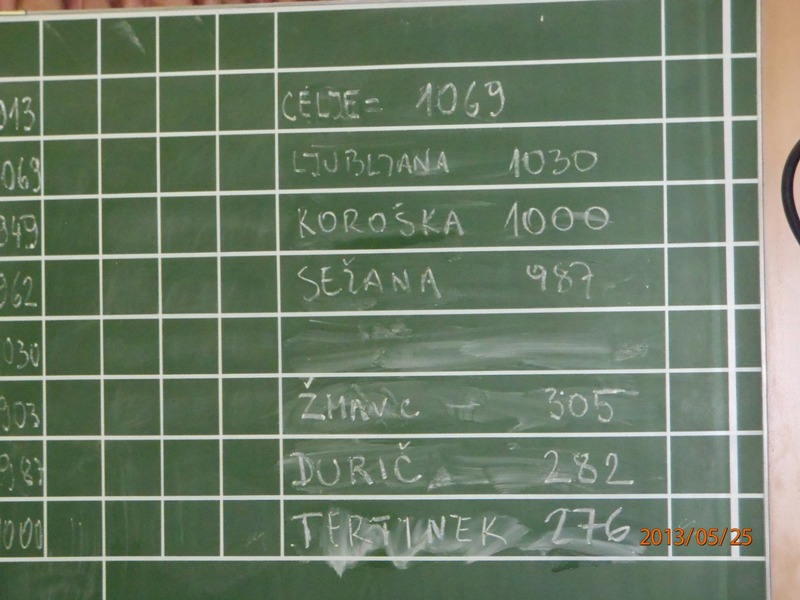 013 CELJE = 1069
069 LJUBLJANA 1030
949 KOROŠKA 1000
962 SEŽANA 987
030
903 ŽMAVC - 305
987 DURIČ 282
1000 TERTINEK 276
2013/05/25